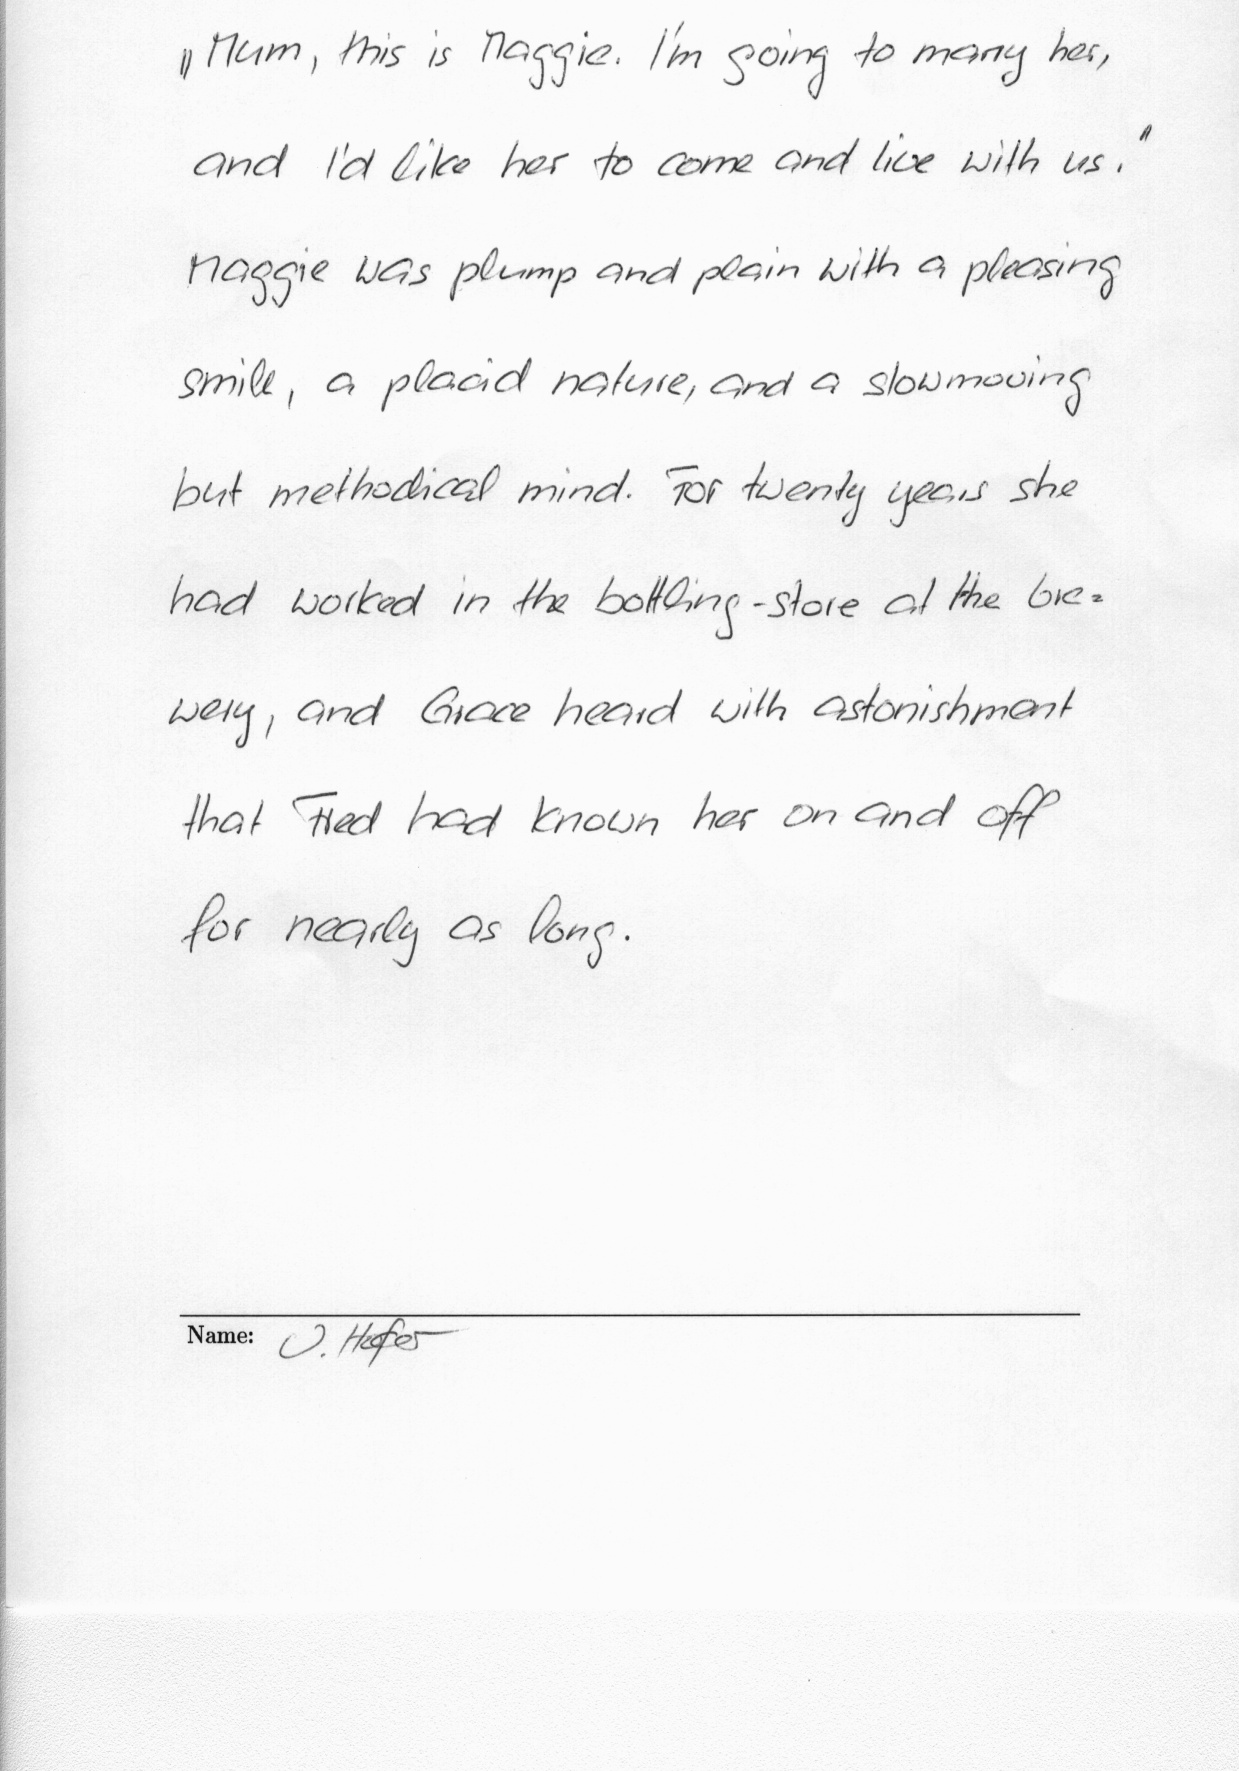 „Mum, this is Maggie. I'm going to marry her,
and I'd like her to come and live with us."
Maggie was plump and plain with a pleasing
smile, a placid nature, and a slowmoving
but methodical mind. For twenty years she
had worked in the bottling-store at the bre=
wery, and Grace heard with astonishment
that Fred had known her on and off
for nearly as long.
Name: J. Hofer